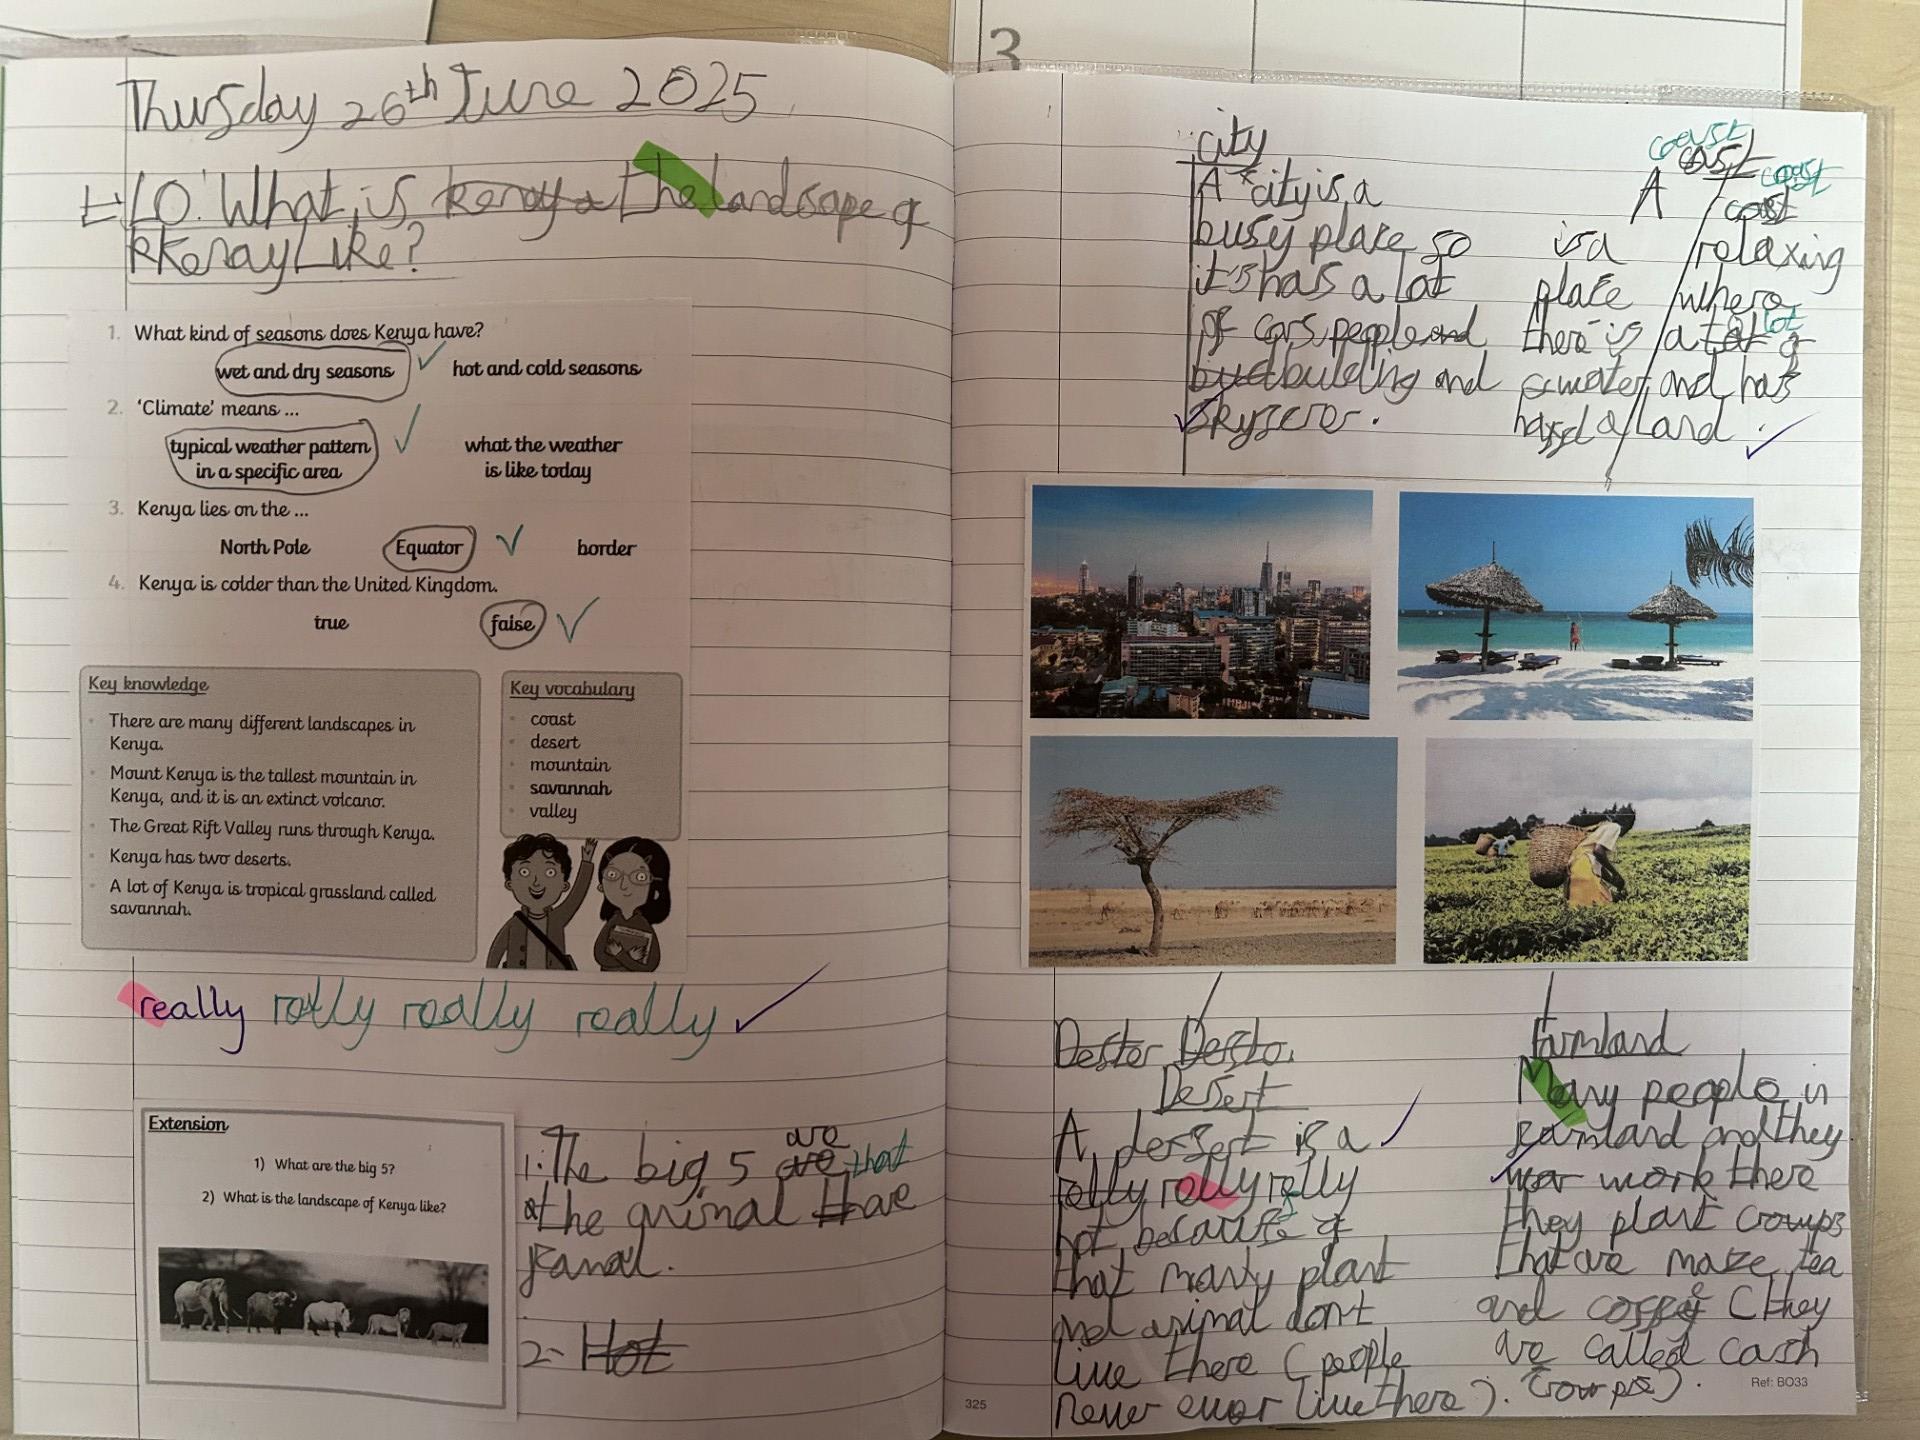 Thursday 26th June 2025
LO: What is the landscape of
Kenay Like?
1. What kind of seasons does Kenya have?
wet and dry seasons hot and cold seasons
2. 'Climate' means ...
typical weather pattern what the weather
in a specific area is like today
3. Kenya lies on the ...
North Pole Equator border
4. Kenya is colder than the United Kingdom.
true false
Key knowledge
There are many different landscapes in
Kenya.
Mount Kenya is the tallest mountain in
Kenya, and it is an extinct volcano.
The Great Rift Valley runs through Kenya.
Kenya has two deserts.
A lot of Kenya is tropical grassland called
savannah.
Key vocabulary
coast
desert
mountain
savannah
valley
really really really really
Extension
1) What are the big 5?
2) What is the landscape of Kenya like?
1. The big 5 are that
the animal
2- Hot
3
city
A city is a
busy place so
it's has a lot
of cars people and
building and
coast
coast
coast
coast
A
is a relaxing
place where
there is a lot of
water and has
land.
Dester Desto
Desert
A dessert is a
really really really
hot because of
that many plant
and animal don't
live there (people
never ever live there).
Farmland
Many people in
farmland and they
work there
they plant croups
that are maze tea
and coffee (they
are called cash
croups).
325
Ref: BO33